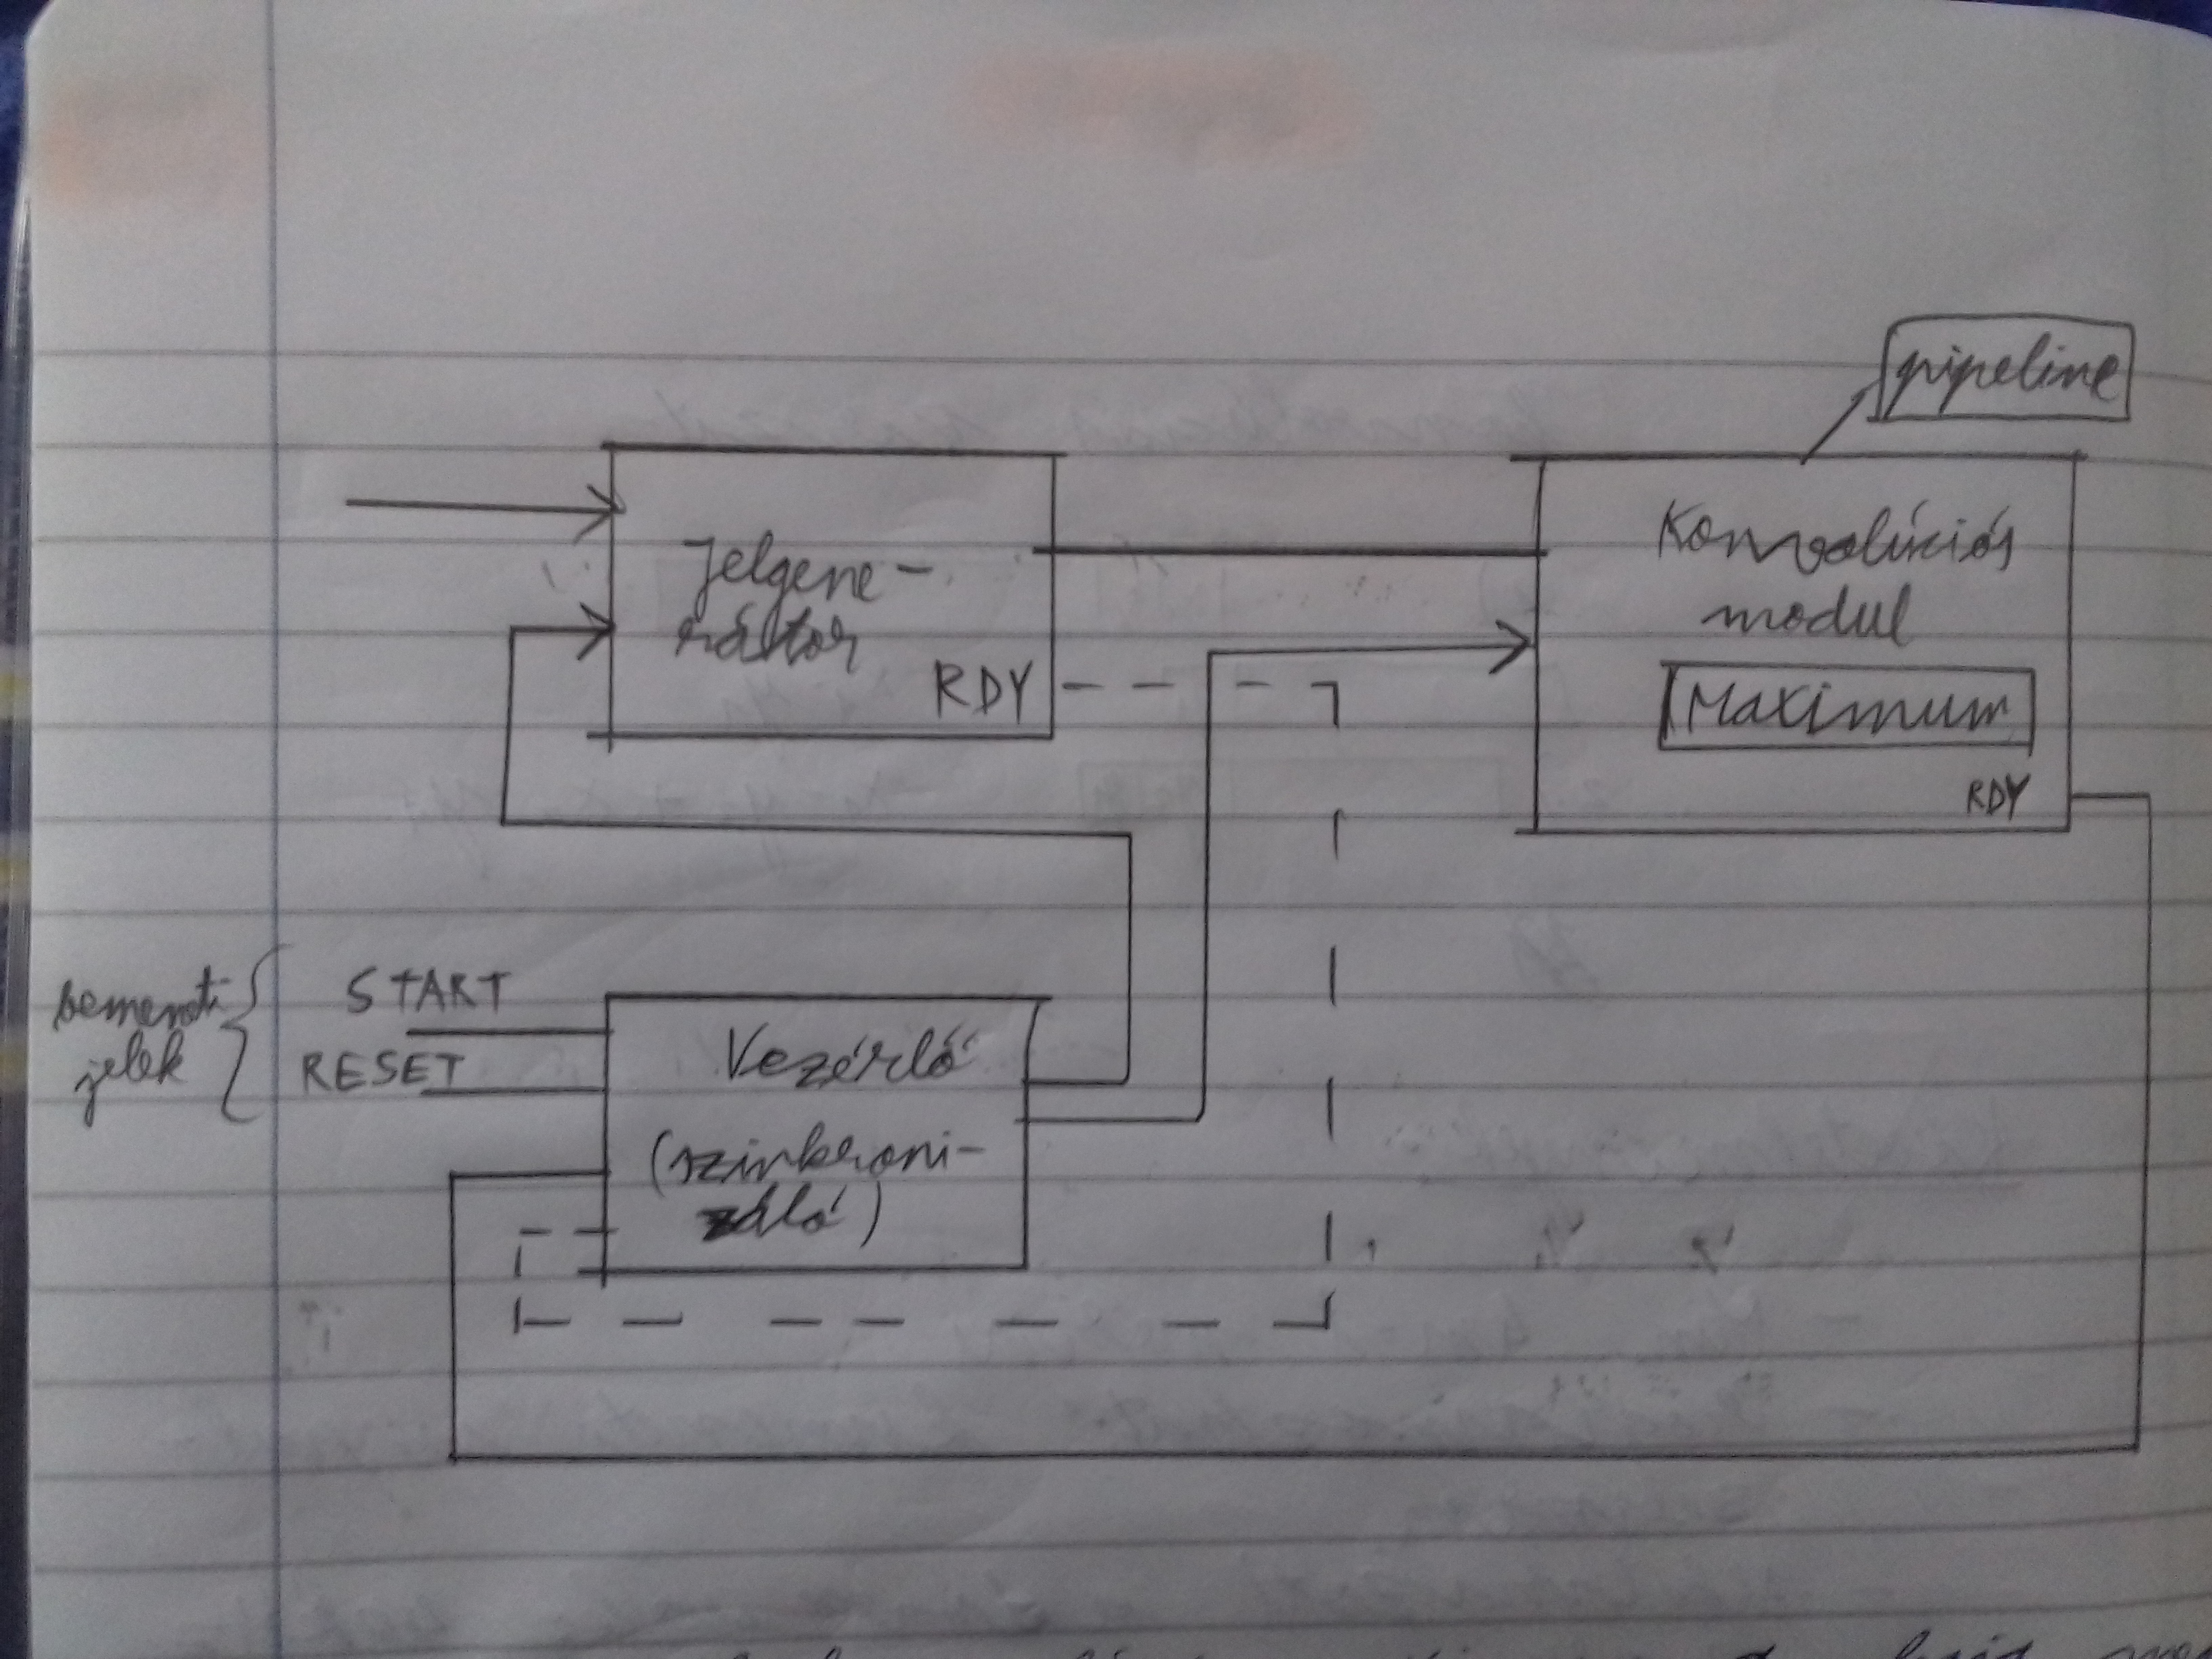 pipeline
Jelgene-
rátor
RDY
Konvolúciós
modul
Maximum
RDY
bemeneti
jelek
START
RESET
Vezérlő
(szinkroni-
záló)